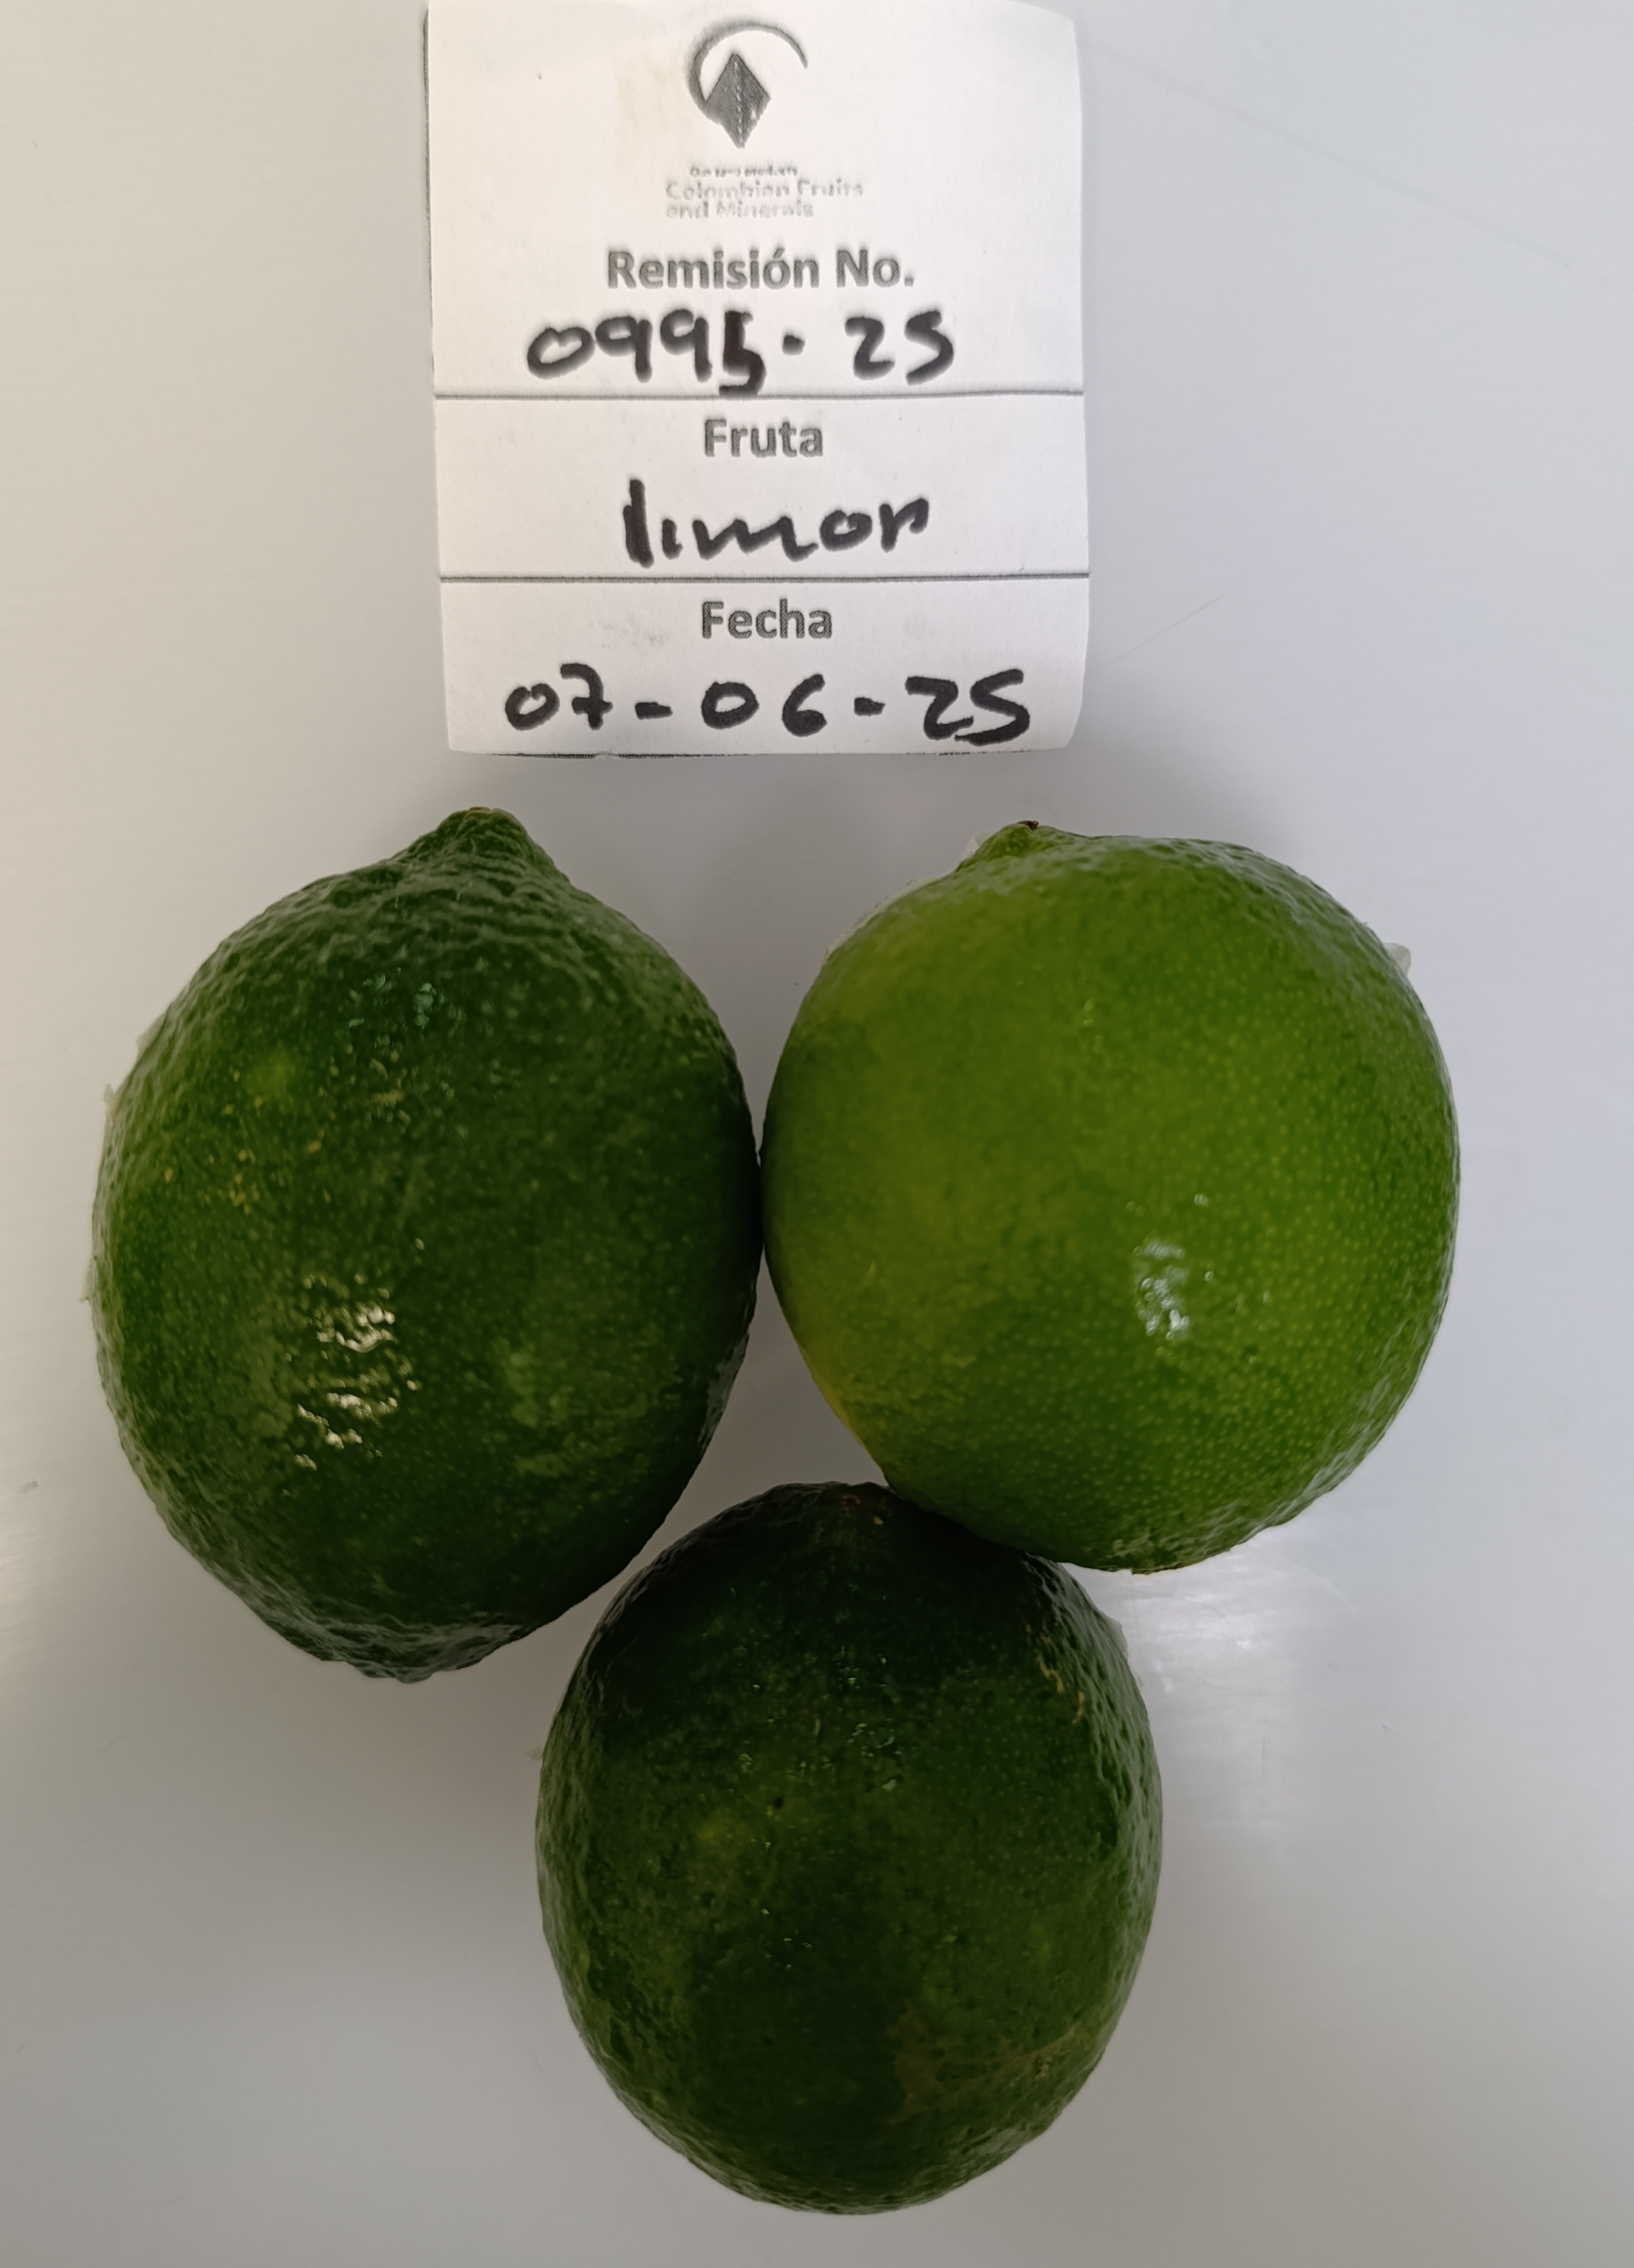 Colombian Fruits
and Minerals
Remisión No.
0995. 25
Fruta
limon
Fecha
07-06-25